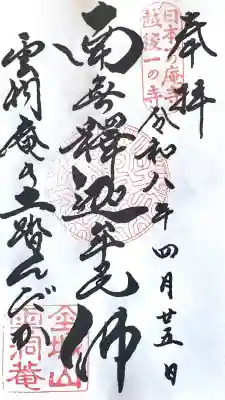 奉拝
日本一の庵
越後一の寺
令和八年四月廿五日
南無釋迦牟尼佛
雲洞庵の土踏んだか
金城山
雲洞庵